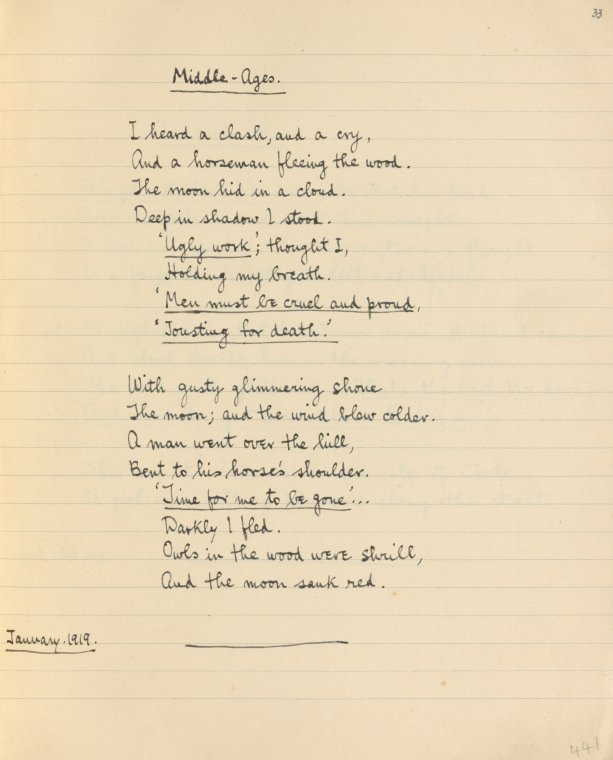 33
Middle-Ages.
I heard a clash, and a cry,
And a horseman fleeing the wood.
The moon hid in a cloud.
Deep in shadow I stood.
'Ugly work'; thought I,
Holding my breath.
'Men must be cruel and proud,
'Jousting for death.'
With gusty glimmering shone
The moon; and the wind blew colder.
A man went over the hill,
Bent to his horse's shoulder.
'Time for me to be gone'...
Darkly I fled.
Owls in the wood were shrill,
And the moon sank red.
January. 1919.
441